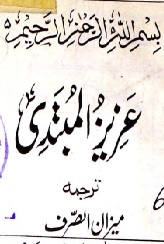 بسم الله الرحمن الرحيم
عزیز المبتدی
ترجمہ
میزان الصرف
6